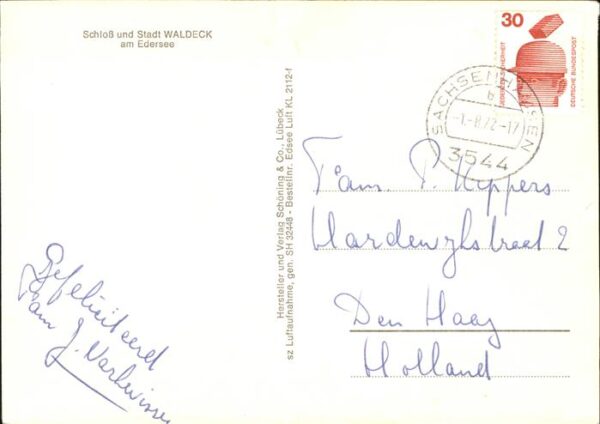 Schloß und Stadt WALDECK
am Edersee
30
JEDERZEIT SICHERHEIT
DEUTSCHE BUNDESPOST
SACHSENHAUSEN
b
-1.-8.72-17
3544
Hersteller und Verlag Schöning & Co., Lübeck
sz Luftaufnahme, gen. SH 32448 - Bestellnr. Edsee Luft KL 2112-f
Fam. P. Kuppers
Harderwijkstraat 2
Den Haag
Holland
Gefeliciteerd
Fam J.